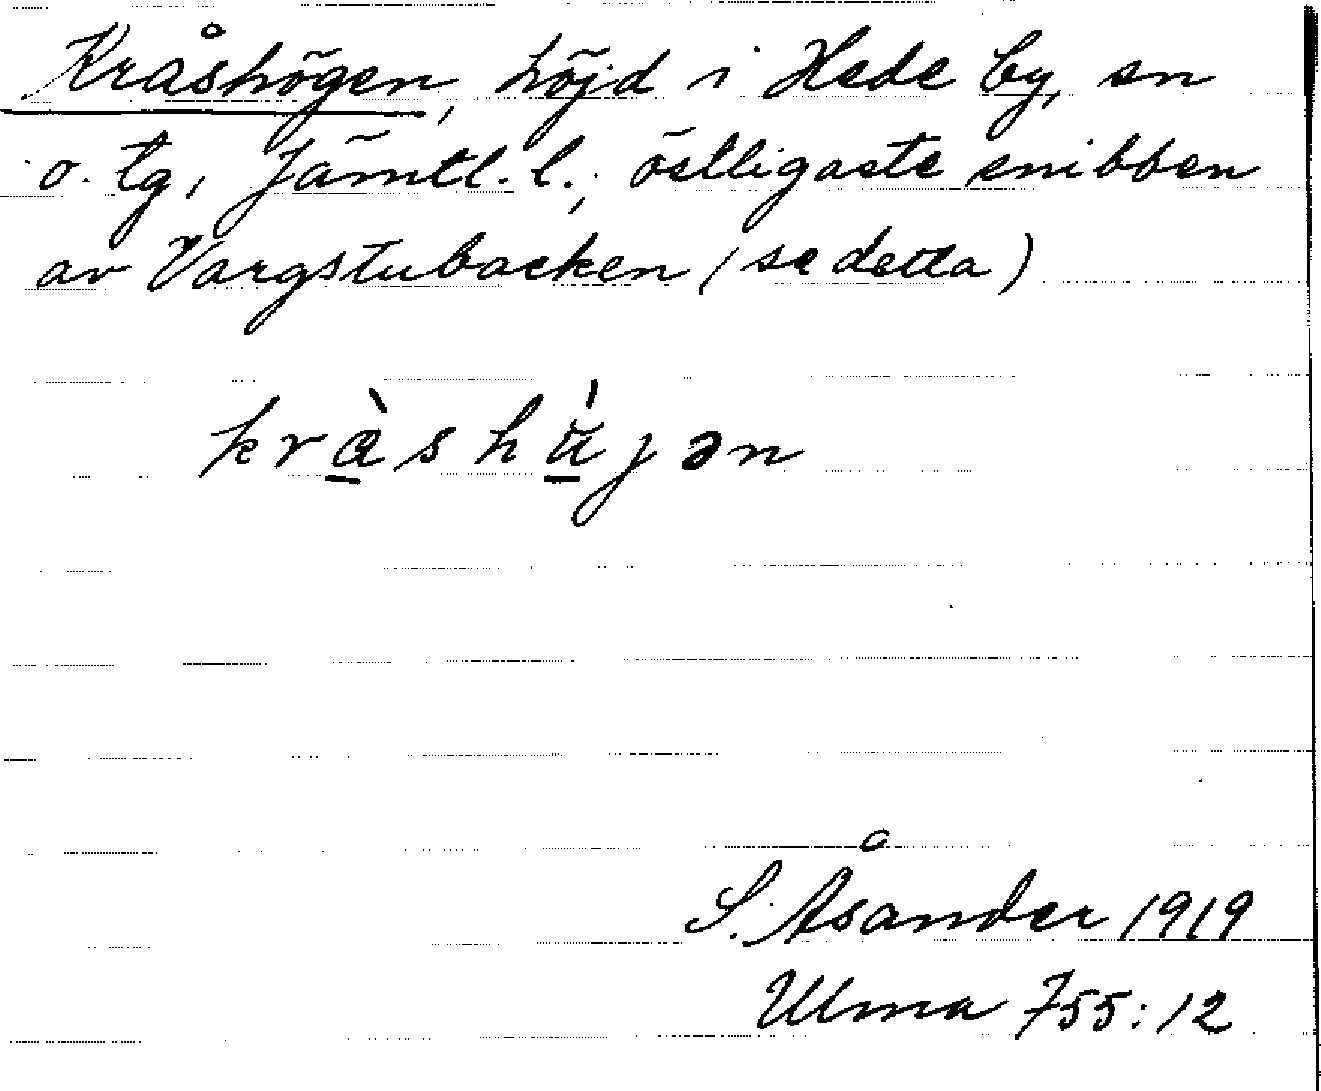 Kråshögen, höjd i Hede by, sn
o. tg, Jämtl. l.; östligaste snibben
av Vargstubacken (se detta)
krà̲shä̲̀jən
S. Åsander 1919
Ulma 755:12